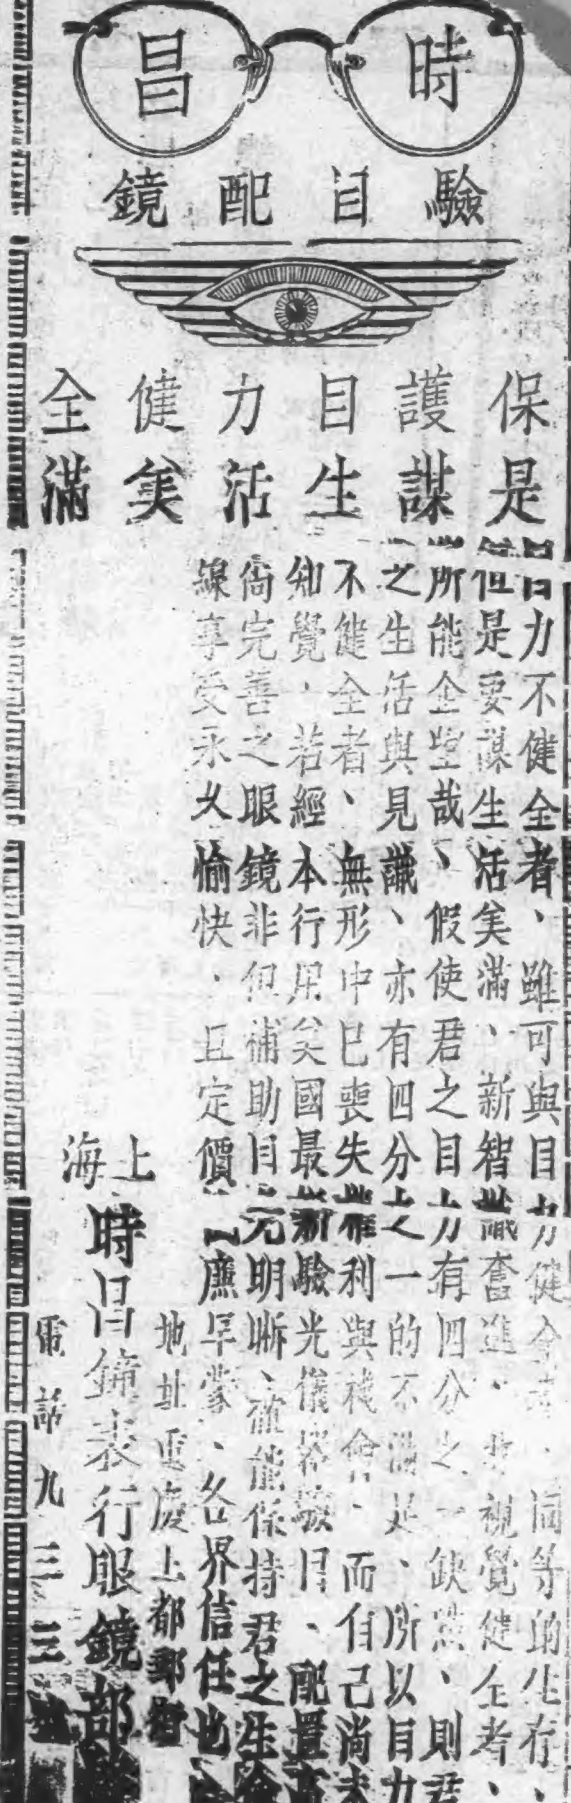 時昌
驗目配鏡
保護目力健全
是謀生活美滿
目力不健全者、雖可與目力健全者、同等的生存、
但是要謀生活美滿、新智識奮進、非視覺健全者、
所能企望哉、假使君之目力有四分之一缺點、則君
之生活與見識、亦有四分之一的不滿足、所以目力
不健全者、無形中已喪失權利與機會、而自己尚未
知覺、若經本行用美國最新驗光儀器驗目、配置
尚完善之眼鏡非但補助目光明晰、確能保持君之生命
線享受永久愉快、且定價 廉早蒙、各界信任也
地址重慶上都郵街
上海時昌鐘表行眼鏡部
電話九三三